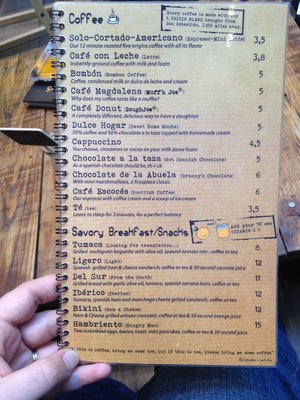 Coffee
Every coffee is made with our
6 ORIGIN BLEND brought from
San Sebastián, 3,696 miles away
Solo-Cortado-Americano (Espresso-Mini Latte) 3,5
Our 12 minute roasted five origins coffee with all its flavor
Café con Leche (Latte) 3,8
Instantly-ground coffee with milk and foam
Bombón (Bombon Coffee) 5
Coffee, condensed milk or dulce de leche and cream
Café Magdalena (Muffa Joe®) 5
Why does my coffee taste like a muffin?
Café Donut (DoughJoe®) 5
A completely different, delicious way to have a doughnut
Dulce Hogar (Sweet Home Mocha) 5
50% coffee and 50% chocolate a la taza topped with homemade cream
Cappuccino 4,5
You choose, cinnamon or cocoa on your milk dome foam
Chocolate a la taza (Hot Spanish Chocolate) 5
As a spanish chocolate should be, thick
Chocolate de la Abuela (Granny's Chocolate) 6
With mini marshmallows, a fireplace classic
Café Escocés (Scottish Coffee) 6
Our espresso with coffee cream and a scoop of ice cream
Té (Tea) 3,5
Leave to steep for 3 minutes, for a perfect balance
Add your 50 sec
VITAMIN C
Savory Breakfast/Snacks
Tumaca (Looking for translation…) 8
Grilled multigrain baguette with olive oil, spanish tomato mix, coffee or tea
Ligero (Light) 12
Spanish grilled ham & cheese sandwich, coffee or tea & 50 second squeeze juice
Del Sur (From the South) 11
Grilled bread with garlic olive oil, tumaca, spanish serrano ham, coffee or tea
Ibérico (Iberian) 12
Tumaca, spanish ham and manchego cheese grilled sandwich, coffee or tea
Bikini (Ham & Cheese) 12
Ham & Cheese artisan croissant, coffee or tea & 50 second orange juice
Hambriento (Hungry Man) 15
Two scrambled eggs, bacon, toast, mini pancakes, coffee or tea & 50 second juice.
"If this is coffee, bring me some tea; but if this is tea, please bring me some coffee"